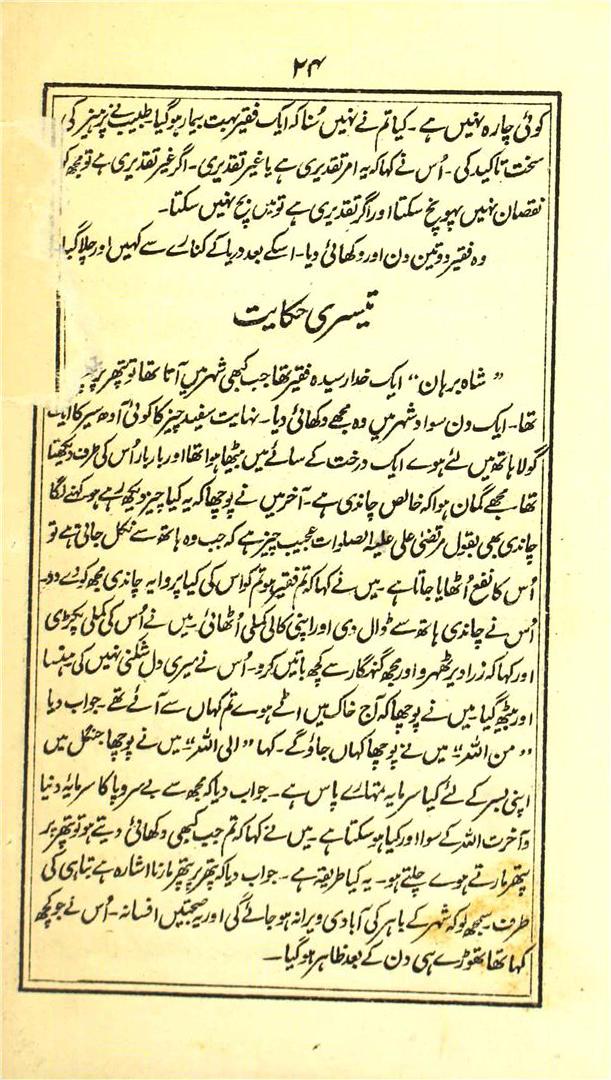 ۲۴
کوئی چارہ نہیں ہے۔ کیا تم نے نہیں سُنا کہ ایک فقیر بہت بیمار ہوگیا۔ طبیب نے پرہیز کی
سخت تاکید کی۔ اُس نے کہا کہ یہ امر تقدیری ہے یا غیر تقدیری۔ اگر غیر تقدیری ہے تو مجھ کو
نقصان نہیں پہونچ سکتا اور اگر تقدیری ہے تو میں بچ نہیں سکتا۔
وہ فقیر دو تین دن اور دکھائی دیا۔ اسکے بعد دریا کے کنارے سے کہیں اور چلا گیا
تیسری حکایت
”شاہ برہان“ ایک خدارسیدہ فقیر تھا جب کبھی شہر میں آتا تھا تو پتھر پر
تھا۔ ایک دن سواد شہر میں وہ مجھے دکھائی دیا۔ نہایت سفید چیز کا کوئی آدھ سیر کا ایک
گولا ہاتھ میں لئے ہوے ایک درخت کے سائے میں بیٹھا ہوا تھا اور بار بار اُس کی طرف دیکھتا
تھا۔ مجھے گمان ہوا کہ خالص چاندی ہے۔ آخر میں نے پوچھا کہ یہ کیا چیز دیکھ رہے ہو کہنے لگا
چاندی بھی بقول مرتضیٰ علی علیہ الصلوات عجیب چیز ہے کہ جب وہ ہاتھ سے نکل جاتی ہے تو
اُس کا نفع اُٹھایا جاتا ہے۔ میں نے کہا کہ تم فقیر ہو تم کو اس کی کیا پروا یہ چاندی مجھ کو دے دو۔
اُس نے چاندی ہاتھ سے ڈال دی اور اپنی کالی کملی اُٹھائی۔ میں نے اُس کی کملی پکڑی
اور کہا کہ ذرا دیر ٹھہرو اور مجھ گنہگار سے کچھ باتیں کرو۔ اُس نے میری دل شکنی نہیں کی ہنسا
اور بیٹھ گیا۔ میں نے پوچھا کہ آج خاک میں اٹے ہوے تم کہاں سے آئے تھے۔ جواب دیا
”من اللہ“ میں نے پوچھا کہاں جاؤگے۔ کہا ”الی اللہ“ میں نے پوچھا جنگل میں
اپنی بسر کے لئے کیا سرمایہ تمہارے پاس ہے۔ جواب دیا کہ مجھ سے بے سروپا کا سرمایۂ دنیا
و آخرت اللہ کے سوا اور کیا ہو سکتا ہے۔ میں نے کہا کہ تم جب کبھی دکھائی دیتے ہو تو پتھر پر
پتھر مارتے ہوے چلتے ہو۔ یہ کیا طریقہ ہے۔ جواب دیا کہ پتھر پر پتھر مارنا اشارہ ہے تباہی کی
طرف۔ سمجھ لو کہ شہر کے باہر کی آبادی ویرانہ ہو جائے گی اور یہ صحبتیں افسانہ۔ اُس نے جو کچھ
کہا تھا تھوڑے ہی دن کے بعد ظاہر ہو گیا۔